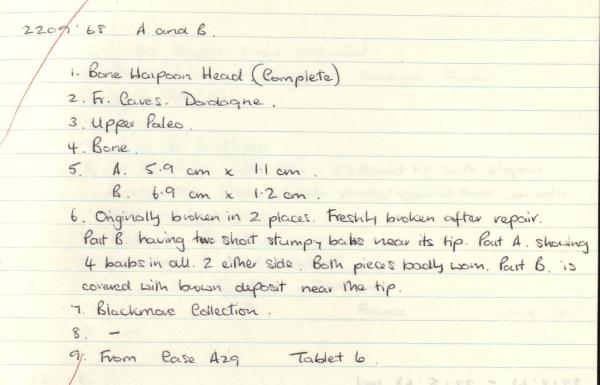 2209'68 A and B.
1. Bone Harpoon Head (Complete)
2. Fr. Caves. Dordogne.
3. Upper Paleo.
4. Bone.
5. A. 5.9 cm x 1.1 cm.
B. 6.9 cm x 1.2 cm.
6. Originally broken in 2 places. Freshly broken after repair.
Part B. having two short stumpy babs near its tip. Part A. showing
4 barbs in all. 2 either side. Both pieces badly worn. Part B. is
covered with brown deposit near the tip.
7. Blackmore Collection.
8. -
9. From Case A29 Tablet 6.